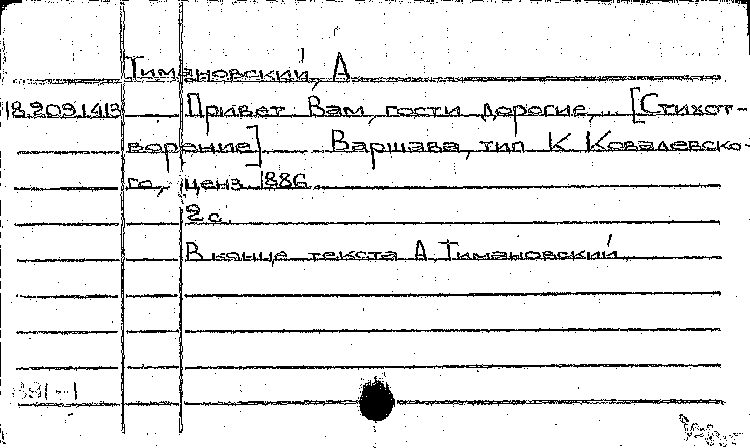 Тимановский, А.
18.209.1413 Привет Вам, гости дорогие,... [Стихот-
ворение]. Варшава, тип. К. Ковалевско-
го, ценз. 1886.
2 с.
В конце текста: А. Тимановский.
391-1